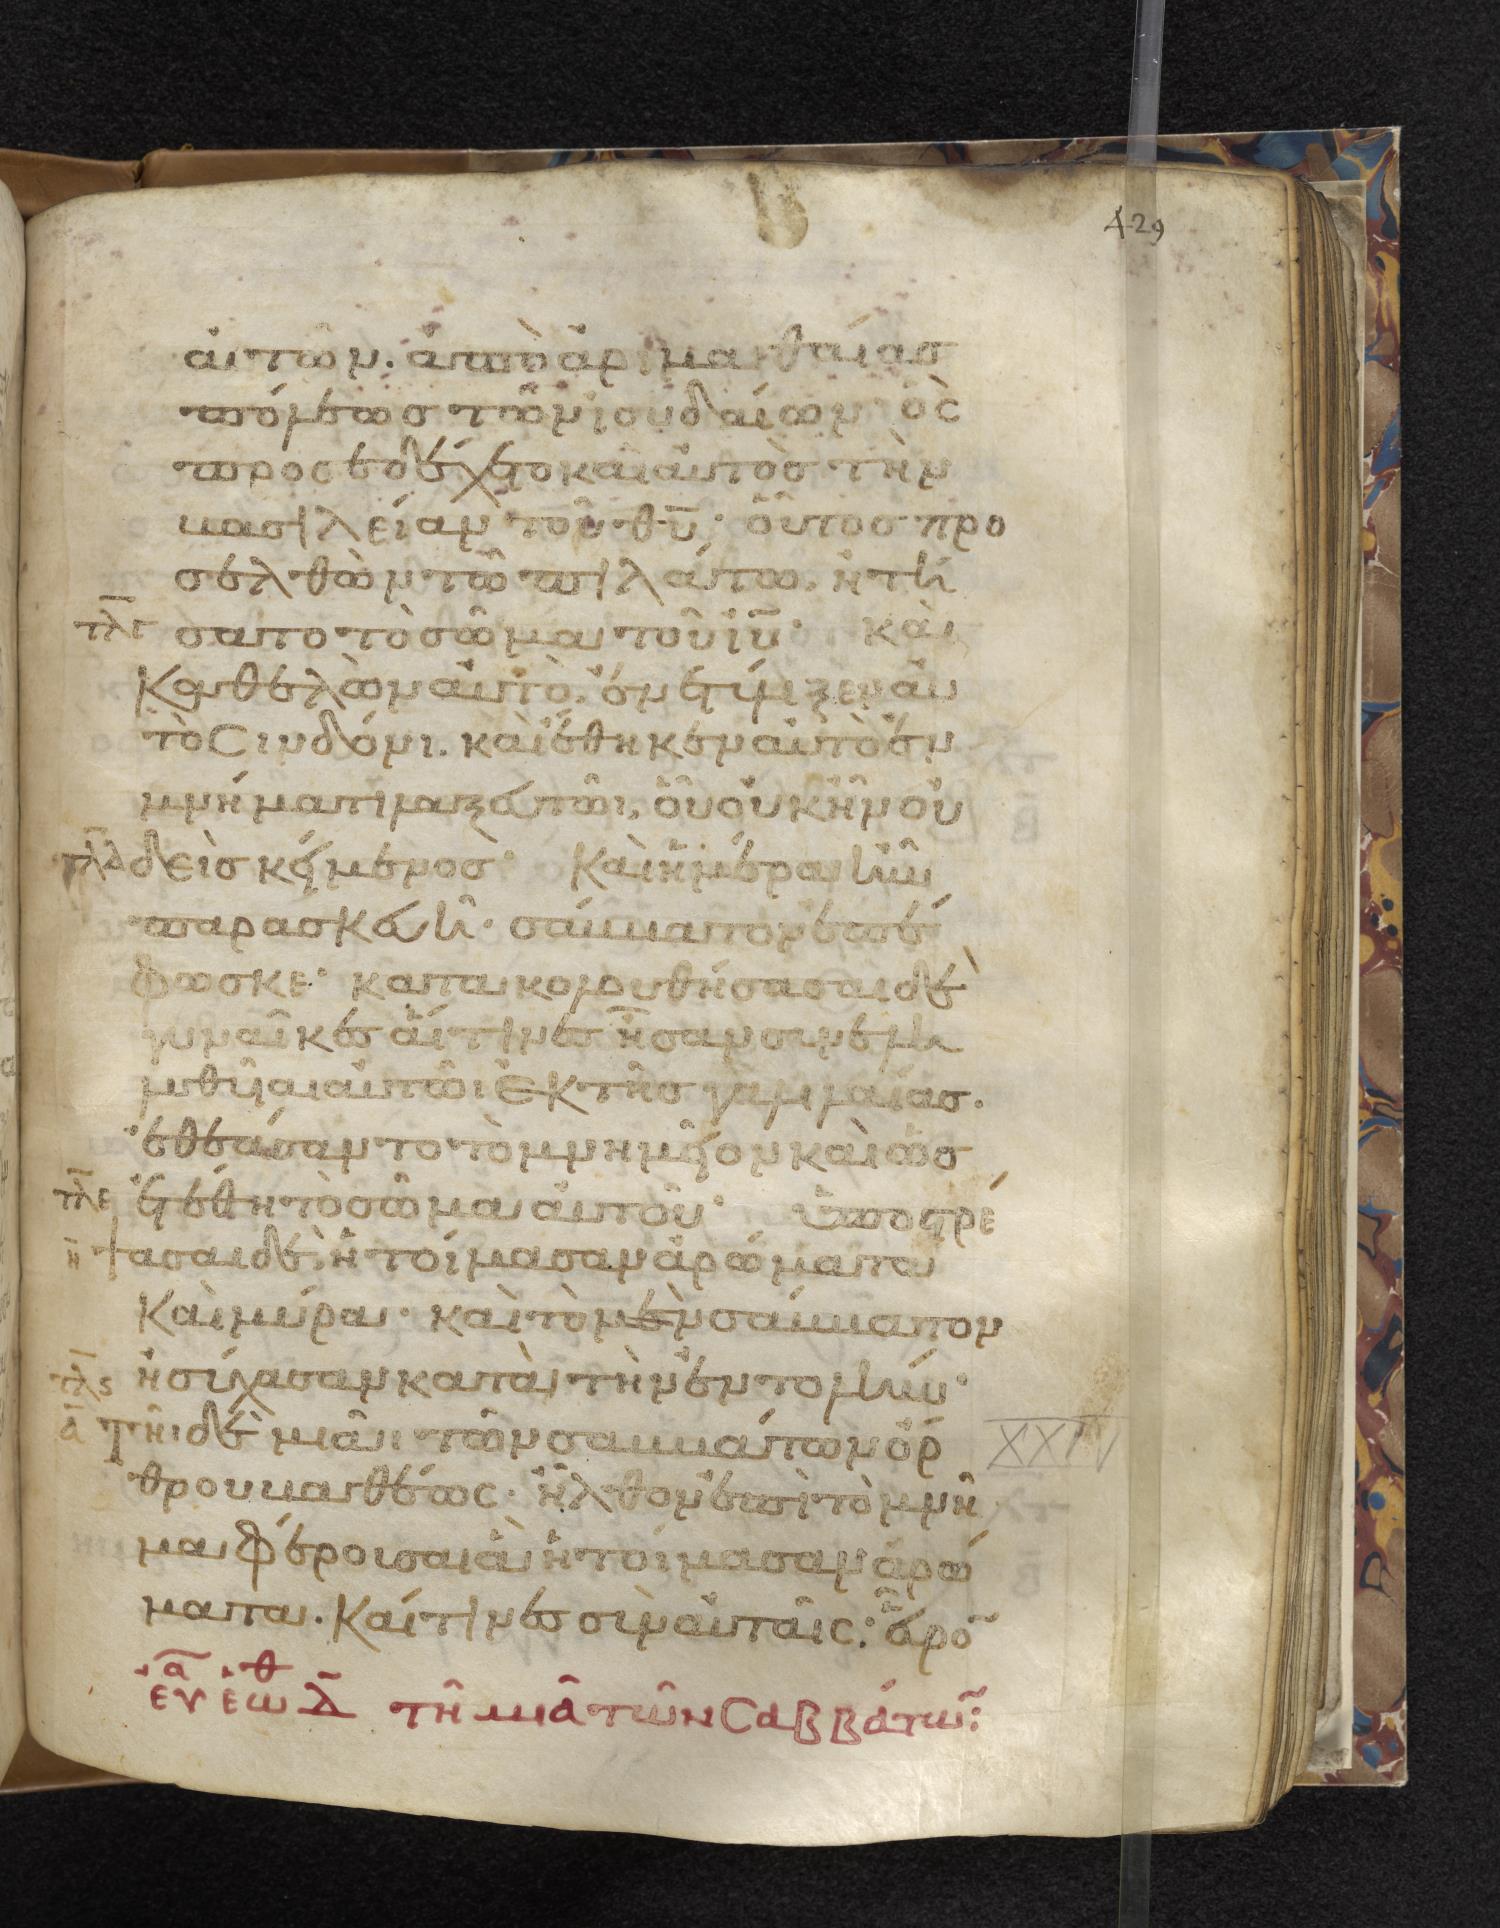 429
αὐτῶν. ἀπὸ ἀριμαθαίασ
πόλεωσ τῶν ἰουδαίων ὃς
προσεδέχετο καὶ αὐτὸσ τὴν
βασιλείαν τοῦ θῡ· οὗτοσ προ
σελθὼν τῶ πιλάτω, ἠτη
τλγ σατο τὸ σῶμα τοῦ ἰῡ· καὶ
Καθελὼν αὐτὸ, ἐνετύλιξεν αὐ
τὸ Σινδόνι. καὶ ἔθηκεν αὐτὸ ἐν
μνήματι λαξευτῶι, οὗ οὐκ ἦν οὐ
τλδ δεὶσ κείμενοσ· Καὶ ἡμέρα ἦν
παρασκευῆ· σάββατον ἐπέ
φωσκε· κατακολουθήσασαι δὲ
γυναῖκεσ αἵτινεσ ἦσαν συνελη
λυθῦαι αὐτῶι ἐκ τῆσ γαλιλαίασ.
ἐθεάσαντο τὸ μνημεῖον καὶ ὡσ
τλε ἐτέθη τὸ σῶμα αὐτοῦ· Ὑποστρέ
η ψασαι δὲ, ἡτοίμασαν ἀρώματα
Καὶ μύρα· καὶ τὸ μὲν σάββατον
τλς ἡσύχασαν κατὰ τὴν ἐντολήν·
α Τῆι δὲ μιᾶι τῶν σαββάτων ὄρ
XXIV
θρου βαθέως· ἦλθον ἐπὶ τὸ μνῆ
μα φέρουσαι ἃ ἡτοίμασαν ἀρώ
ματα. Καί τινεσ σὺν αὐταῖς· εὗρο̄
εὐα ἑωθ δ τῆ μιᾶ τῶν Σαββάτω̄: